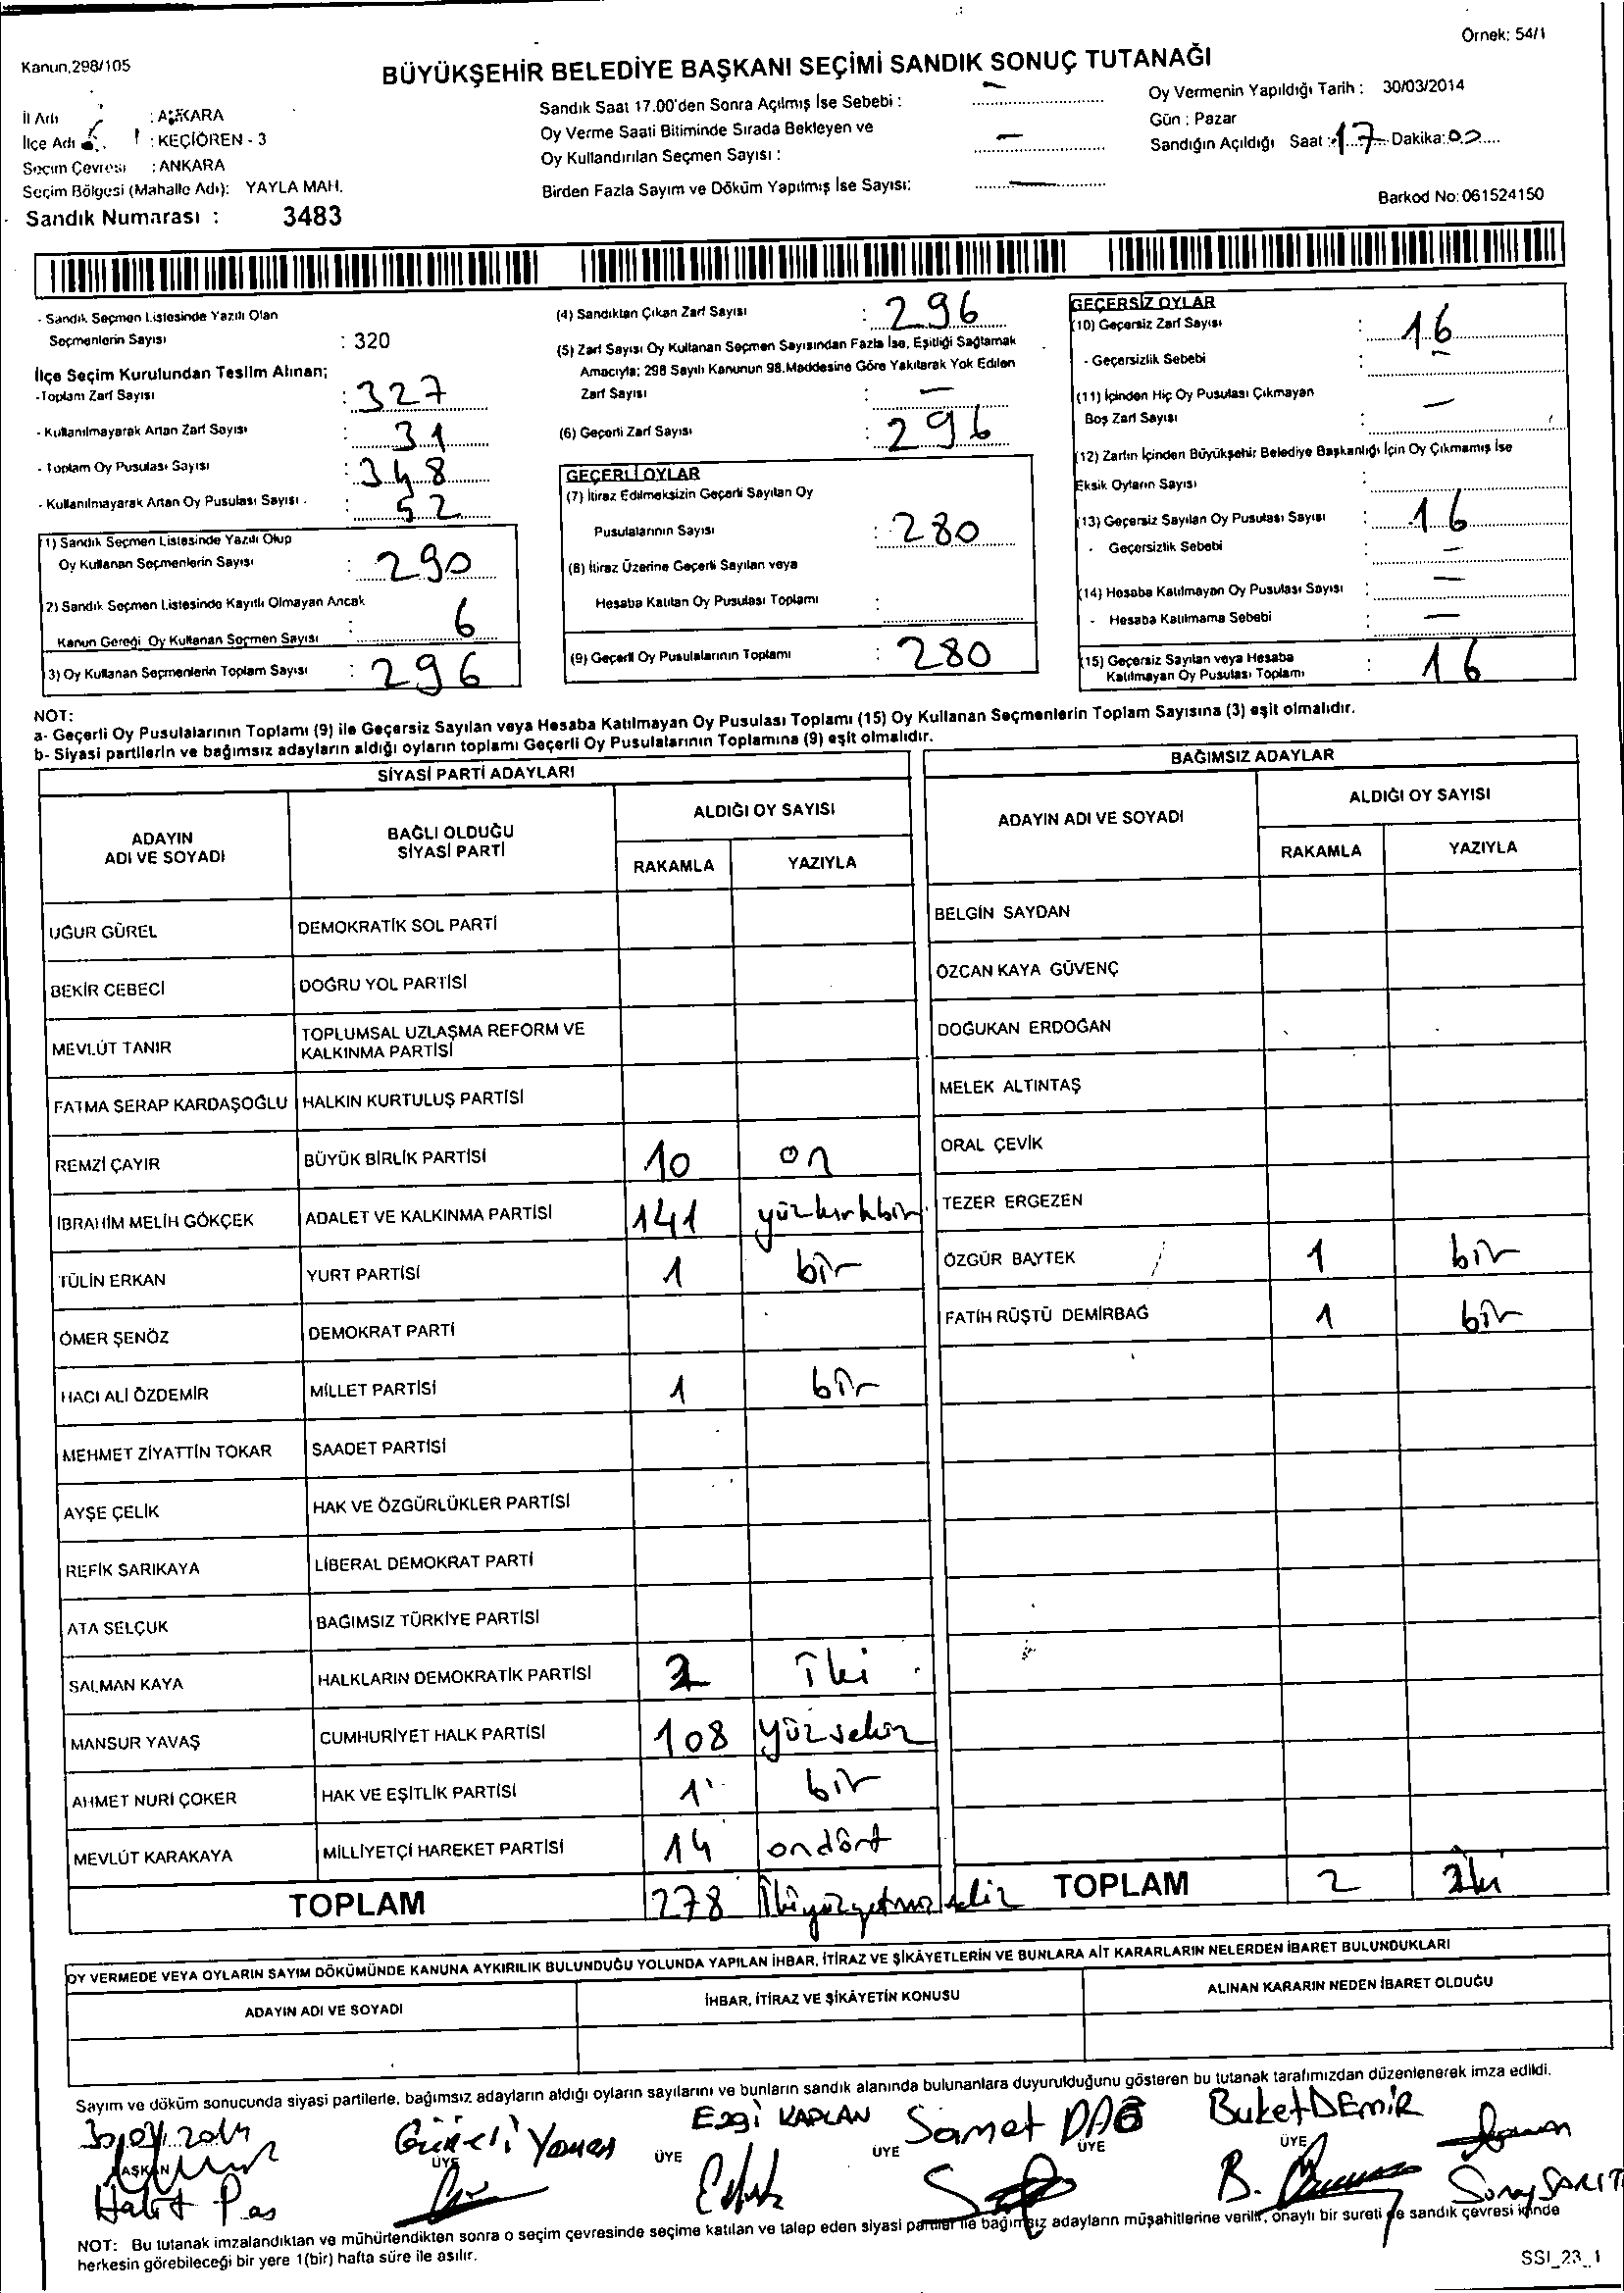 Örnek: 54/1
Kanun,298/105
BÜYÜKŞEHİR BELEDİYE BAŞKANI SEÇİMİ SANDIK SONUÇ TUTANAĞI
İl Adı : ANKARA
İlçe Adı : KEÇİÖREN - 3
Seçim Çevresi : ANKARA
Seçim Bölgesi (Mahalle Adı): YAYLA MAH.
Sandık Numarası : 3483
Sandık Saat 17.00'den Sonra Açılmış İse Sebebi : —
Oy Verme Saati Bitiminde Sırada Bekleyen ve
Oy Kullandırılan Seçmen Sayısı : —
Birden Fazla Sayım ve Döküm Yapılmış İse Sayısı: —
Oy Vermenin Yapıldığı Tarih : 30/03/2014
Gün : Pazar
Sandığın Açıldığı Saat : 17 Dakika: 00
Barkod No: 061524150
- Sandık Seçmen Listesinde Yazılı Olan
Seçmenlerin Sayısı : 320
İlçe Seçim Kurulundan Teslim Alınan;
-Toplam Zarf Sayısı : 327
- Kullanılmayarak Artan Zarf Sayısı : 31
- Toplam Oy Pusulası Sayısı : 348
- Kullanılmayarak Artan Oy Pusulası Sayısı : 52
1) Sandık Seçmen Listesinde Yazılı Olup
Oy Kullanan Seçmenlerin Sayısı : 290
2) Sandık Seçmen Listesinde Kayıtlı Olmayan Ancak
Kanun Gereği Oy Kullanan Seçmen Sayısı : 6
3) Oy Kullanan Seçmenlerin Toplam Sayısı : 296
(4) Sandıktan Çıkan Zarf Sayısı : 296
(5) Zarf Sayısı Oy Kullanan Seçmen Sayısından Fazla İse, Eşitliği Sağlamak
Amacıyla; 298 Sayılı Kanunun 98.Maddesine Göre Yakılarak Yok Edilen
Zarf Sayısı : —
(6) Geçerli Zarf Sayısı : 296
GEÇERLİ OYLAR
(7) İtiraz Edilmeksizin Geçerli Sayılan Oy
Pusulalarının Sayısı : 280
(8) İtiraz Üzerine Geçerli Sayılan veya
Hesaba Katılan Oy Pusulası Toplamı :
(9) Geçerli Oy Pusulalarının Toplamı : 280
GEÇERSİZ OYLAR
(10) Geçersiz Zarf Sayısı : 16
- Geçersizlik Sebebi : —
(11) İçinden Hiç Oy Pusulası Çıkmayan
Boş Zarf Sayısı : —
(12) Zarfın İçinden Büyükşehir Belediye Başkanlığı İçin Oy Çıkmamış İse
Eksik Oyların Sayısı :
(13) Geçersiz Sayılan Oy Pusulası Sayısı : 16
- Geçersizlik Sebebi : —
(14) Hesaba Katılmayan Oy Pusulası Sayısı : —
- Hesaba Katılmama Sebebi : —
(15) Geçersiz Sayılan veya Hesaba
Katılmayan Oy Pusulası Toplamı : 16
NOT:
a- Geçerli Oy Pusulalarının Toplamı (9) ile Geçersiz Sayılan veya Hesaba Katılmayan Oy Pusulası Toplamı (15) Oy Kullanan Seçmenlerin Toplam Sayısına (3) eşit olmalıdır.
b- Siyasi partilerin ve bağımsız adayların aldığı oyların toplamı Geçerli Oy Pusulalarının Toplamına (9) eşit olmalıdır.
SİYASİ PARTİ ADAYLARI
ADAYIN ADI VE SOYADI BAĞLI OLDUĞU SİYASİ PARTİ ALDIĞI OY SAYISI
RAKAMLA YAZIYLA
UĞUR GÜREL DEMOKRATİK SOL PARTİ
BEKİR CEBECİ DOĞRU YOL PARTİSİ
MEVLÜT TANIR TOPLUMSAL UZLAŞMA REFORM VE KALKINMA PARTİSİ
FATMA SERAP KARDAŞOĞLU HALKIN KURTULUŞ PARTİSİ
REMZİ ÇAYIR BÜYÜK BİRLİK PARTİSİ 10 on
İBRAHİM MELİH GÖKÇEK ADALET VE KALKINMA PARTİSİ 141 yüzkırkbir
TÜLİN ERKAN YURT PARTİSİ 1 bir
ÖMER ŞENÖZ DEMOKRAT PARTİ
HACI ALİ ÖZDEMİR MİLLET PARTİSİ 1 bir
MEHMET ZİYATTİN TOKAR SAADET PARTİSİ
AYŞE ÇELİK HAK VE ÖZGÜRLÜKLER PARTİSİ
REFİK SARIKAYA LİBERAL DEMOKRAT PARTİ
ATA SELÇUK BAĞIMSIZ TÜRKİYE PARTİSİ
SALMAN KAYA HALKLARIN DEMOKRATİK PARTİSİ 2 iki
MANSUR YAVAŞ CUMHURİYET HALK PARTİSİ 108 yüzsekiz
AHMET NURİ ÇOKER HAK VE EŞİTLİK PARTİSİ 1 bir
MEVLÜT KARAKAYA MİLLİYETÇİ HAREKET PARTİSİ 14 ondört
TOPLAM 278 ikiyüzyetmişsekiz
BAĞIMSIZ ADAYLAR
ADAYIN ADI VE SOYADI ALDIĞI OY SAYISI
RAKAMLA YAZIYLA
BELGİN SAYDAN
ÖZCAN KAYA GÜVENÇ
DOĞUKAN ERDOĞAN
MELEK ALTINTAŞ
ORAL ÇEVİK
TEZER ERGEZEN
ÖZGÜR BAYTEK 1 bir
FATİH RÜŞTÜ DEMİRBAĞ 1 bir
TOPLAM 2 iki
OY VERMEDE VEYA OYLARIN SAYIM DÖKÜMÜNDE KANUNA AYKIRILIK BULUNDUĞU YOLUNDA YAPILAN İHBAR, İTİRAZ VE ŞİKÂYETLERİN VE BUNLARA AİT KARARLARIN NELERDEN İBARET BULUNDUKLARI
ADAYIN ADI VE SOYADI İHBAR, İTİRAZ VE ŞİKÂYETİN KONUSU ALINAN KARARIN NEDEN İBARET OLDUĞU
Sayım ve döküm sonucunda siyasi partilerle, bağımsız adayların aldığı oyların sayılarını ve bunların sandık alanında bulunanlara duyurulduğunu gösteren bu tutanak tarafımızdan düzenlenerek imza edildi.
Ezgi KAPLAN Samet DAĞ Buket DEMİR
BAŞKAN ÜYE ÜYE ÜYE ÜYE ÜYE
Halit Pas
NOT: Bu tutanak imzalandıktan ve mühürlendikten sonra o seçim çevresinde seçime katılan ve talep eden siyasi partiler ile bağımsız adayların müşahitlerine verilir, onaylı bir sureti de sandık çevresi içinde
herkesin görebileceği bir yere 1(bir) hafta süre ile asılır.
SSI_23_1